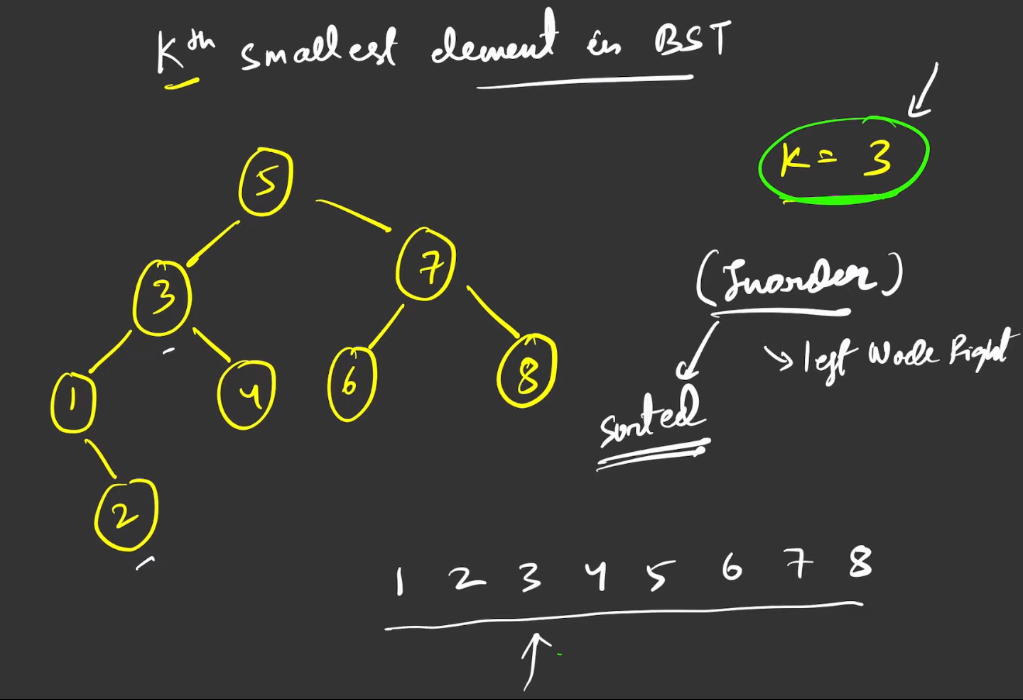 Kth smallest element in BST
K = 3
5
3
7
1
4
6
8
2
(Inorder)
left Node Right
sorted
1 2 3 4 5 6 7 8